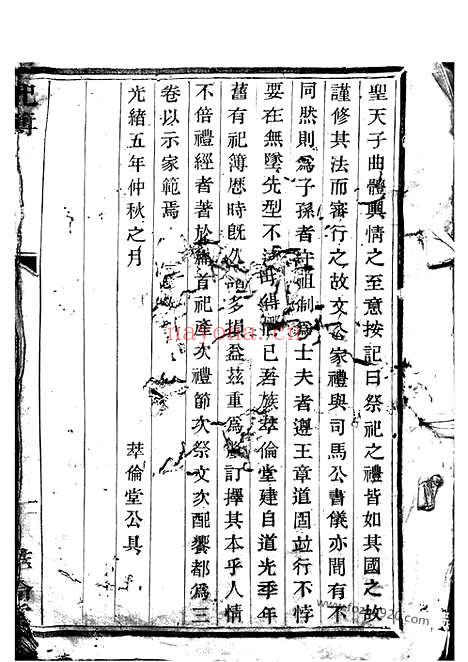 聖天子曲體輿情之至意按記曰祭祀之禮皆如其國之故
謹修其法而審行之故文公家禮與司馬公書儀亦間有不
同然則為子孫者守祖制為士夫者遵王章道固並行不悖
要在無墜先型不已吾族萃倫堂建自道光季年
舊有祀簿歷時既久多損益茲重為訂擇其本乎人情
不倍禮經者著於首祀產次禮節次祭文次配饗都為三
卷以示家範焉
光緒五年仲秋之月
萃倫堂公具
nayona.cn